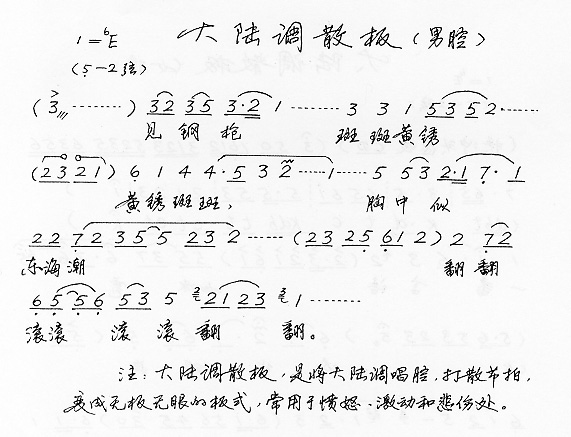 大陆调散板(男腔)
1=♭E
(5̣—2弦)
(3………) 32 35 3·2 1…… 3 3 1 5352·……
见 钢 枪 斑 斑 黄 锈
(23 21) 6̣ 1 4 4·5 3 2……1…… 5 53 2·1 7̣·1
黄 锈 斑 斑, 胸 中 似
22 7̣2 355 23 2……(23 25 6̣1 2) 2 7̣2
东海潮 翻 翻
6̣5̣ 5̣6̣ 5̣3 5 2123 1………
滚滚 滚 滚 翻 翻。
注:大陆调散板,是将大陆调唱腔,打散节拍,
变成无板无眼的板式,常用于愤怒、激动和悲伤处。